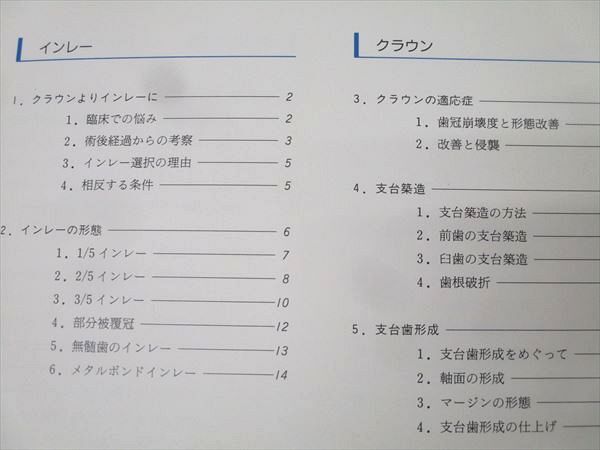 インレー
1．クラウンよりインレーに 2
1．臨床での悩み 2
2．術後経過からの考察 3
3．インレー選択の理由 5
4．相反する条件 5
2．インレーの形態 6
1．1/5インレー 7
2．2/5インレー 8
3．3/5インレー 10
4．部分被覆冠 12
5．無髄歯のインレー 13
6．メタルボンドインレー 14
クラウン
3．クラウンの適応症
1．歯冠崩壊度と形態改善
2．改善と侵襲
4．支台築造
1．支台築造の方法
2．前歯の支台築造
3．臼歯の支台築造
4．歯根破折
5．支台歯形成
1．支台歯形成をめぐって
2．軸面の形成
3．マージンの形態
4．支台歯形成の仕上げ